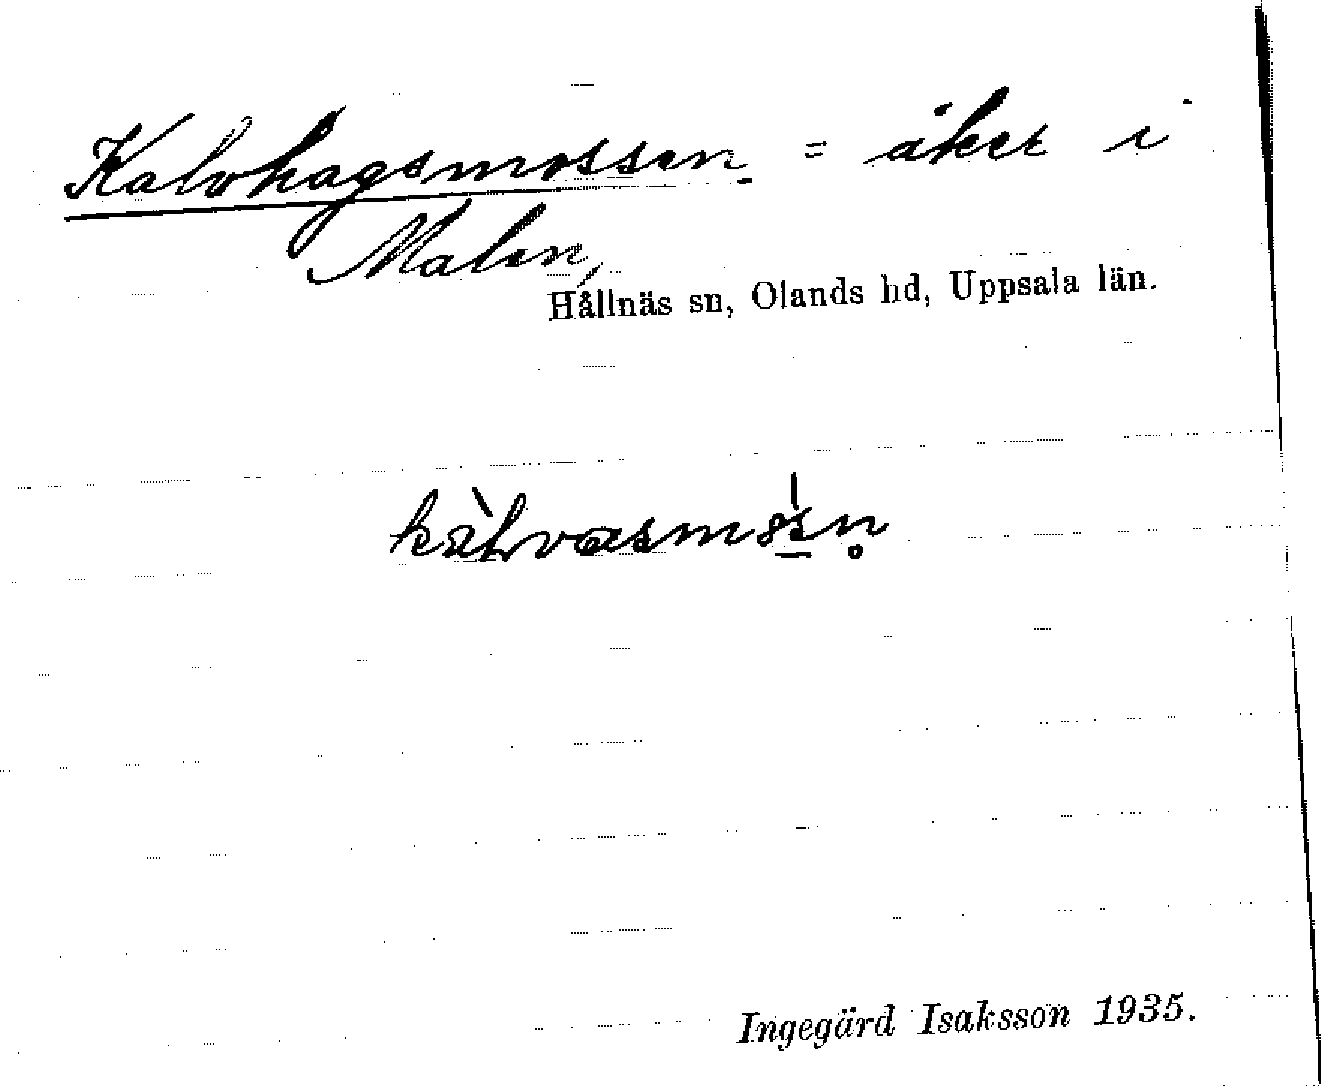 Kalvhagsmossen = åker i
Malen,
Hållnäs sn, Olands hd, Uppsala län.
Ingegärd Isaksson 1935.